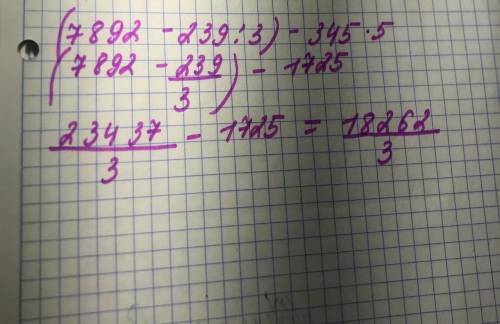 (7892 - 239:3) - 345·5
(7892 - 239/3) - 1725
23437/3 - 1725 = 18262/3